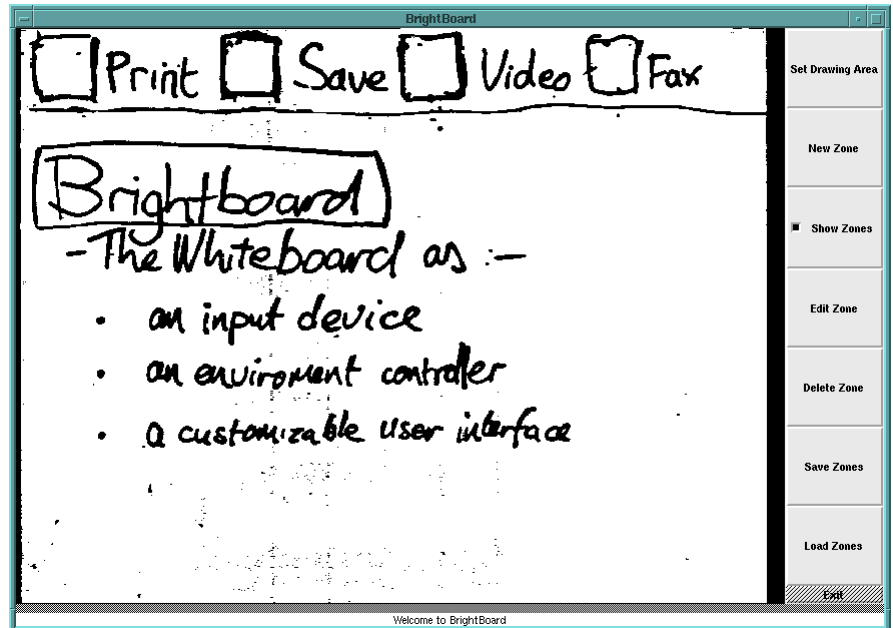 BrightBoard
Print Save Video Fax
Brightboard
- The Whiteboard as :-
• an input device
• an enviroment controller
• a customizable user interface
Set Drawing Area
New Zone
Show Zones
Edit Zone
Delete Zone
Save Zones
Load Zones
Exit
Welcome to BrightBoard